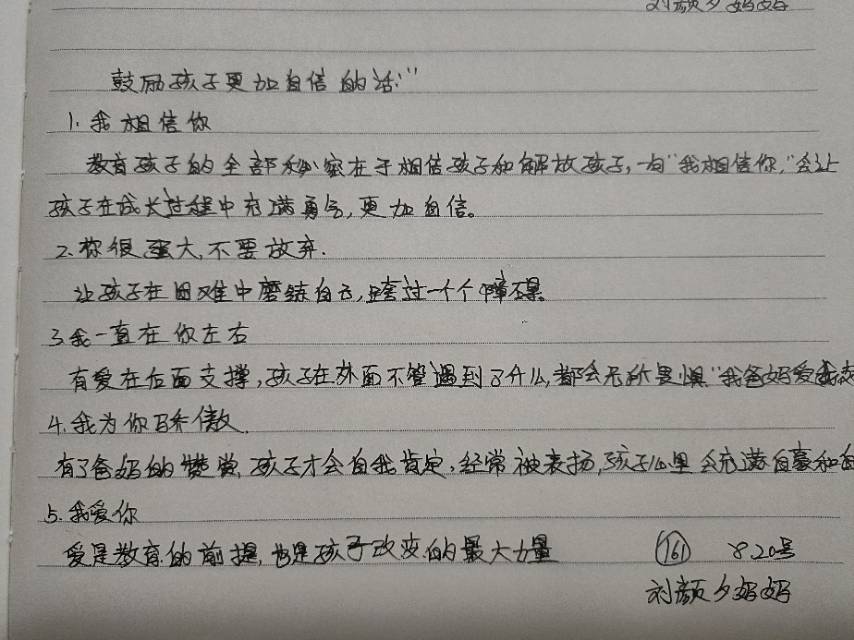 刘颜夕妈妈
鼓励孩子更加自信的话:"
1. 我相信你
教育孩子的全部秘密在于相信孩子和解放孩子,一句"我相信你,"会让
孩子在成长过程中充满勇气,更加自信。
2. 你很强大,不要放弃.
让孩子在困难中磨练自己,跨过一个个障碍
3. 我一直在你左右
有爱在后面支撑,孩子在外面不管遇到了什么,都会无所畏惧"我爸妈爱我
4. 我为你骄傲.
有了爸妈的赞赏,孩子才会自我肯定,经常被表扬,孩子心里会充满自豪和自
5. 我爱你
爱是教育的前提,也是孩子改变的最大力量
161 8.20号
刘颜夕妈妈